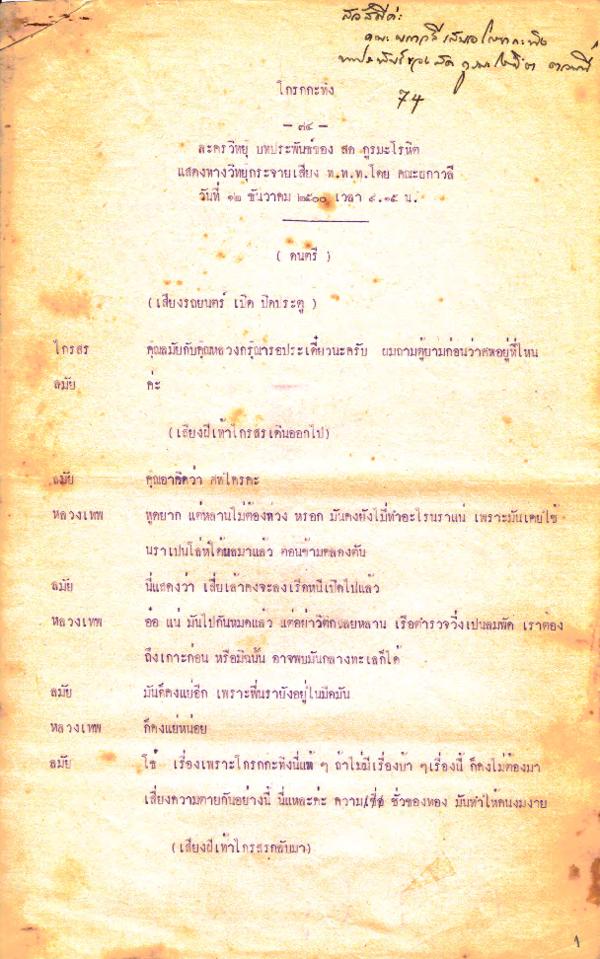 สวัสดีค่ะ
คณะผกาวลีเสนอโกรกกะทิง
บทประพันธ์ของ สด กูรมะโรหิต
74
โกรกกะทิง
— ๗๔ —
ละครวิทยุ บทประพันธ์ของ สด กูรมะโรหิต
แสดงทางวิทยุกระจายเสียง ท.ท.ท.โดย คณะผกาวลี
วันที่ ๑๒ ธันวาคม ๒๕๐๐ เวลา ๙.๑๕ น.
( ดนตรี )
(เสียงรถยนตร์ เปิด ปิดประตู )
ไกรสร คุณสมัยกับคุณหลวงกรุณารอประเดี๋ยวนะครับ ผมถามตู้ยามก่อนว่าศพอยู่ที่ไหน
สมัย ค่ะ
(เสียงฝีเท้าไกรสรเดินออกไป)
สมัย คุณอาคิดว่า ศพใครคะ
หลวงเทพ พูดยาก แต่หลานไม่ต้องห่วง หรอก มันคงยังไม่ทำอะไรนราแน่ เพราะมันเคยใช้
นราเปนโล่ห์ได้ผลมาแล้ว ตอนข้ามคลองตัน
สมัย นี่แสดงว่า เสี่ยเล้าคงจะลงเรือหนีเปิดไปแล้ว
หลวงเทพ อ๋อ แน่ มันไปกันหมดแล้ว แต่อย่าวิตกเลยหลาน เรือตำรวจวิ่งเปนลมพัด เราต้อง
ถึงเกาะก่อน หรือมิฉนั้น อาจพบมันกลางทะเลก็ได้
สมัย มันก็คงแย่อีก เพราะพี่นรายังอยู่ในมือมัน
หลวงเทพ ก็คงแย่หน่อย
สมัย โธ่ เรื่องเพราะโกรกกะทิงนี่แท้ ๆ ถ้าไม่มีเรื่องบ้า ๆเรื่องนี้ ก็คงไม่ต้องมา
เสี่ยงความตายกันอย่างนี้ นี่แหละค่ะ ความ ชั่วของทอง มันทำให้คนงมงาย
(เสียงฝีเท้าไกรสรกลับมา)
1